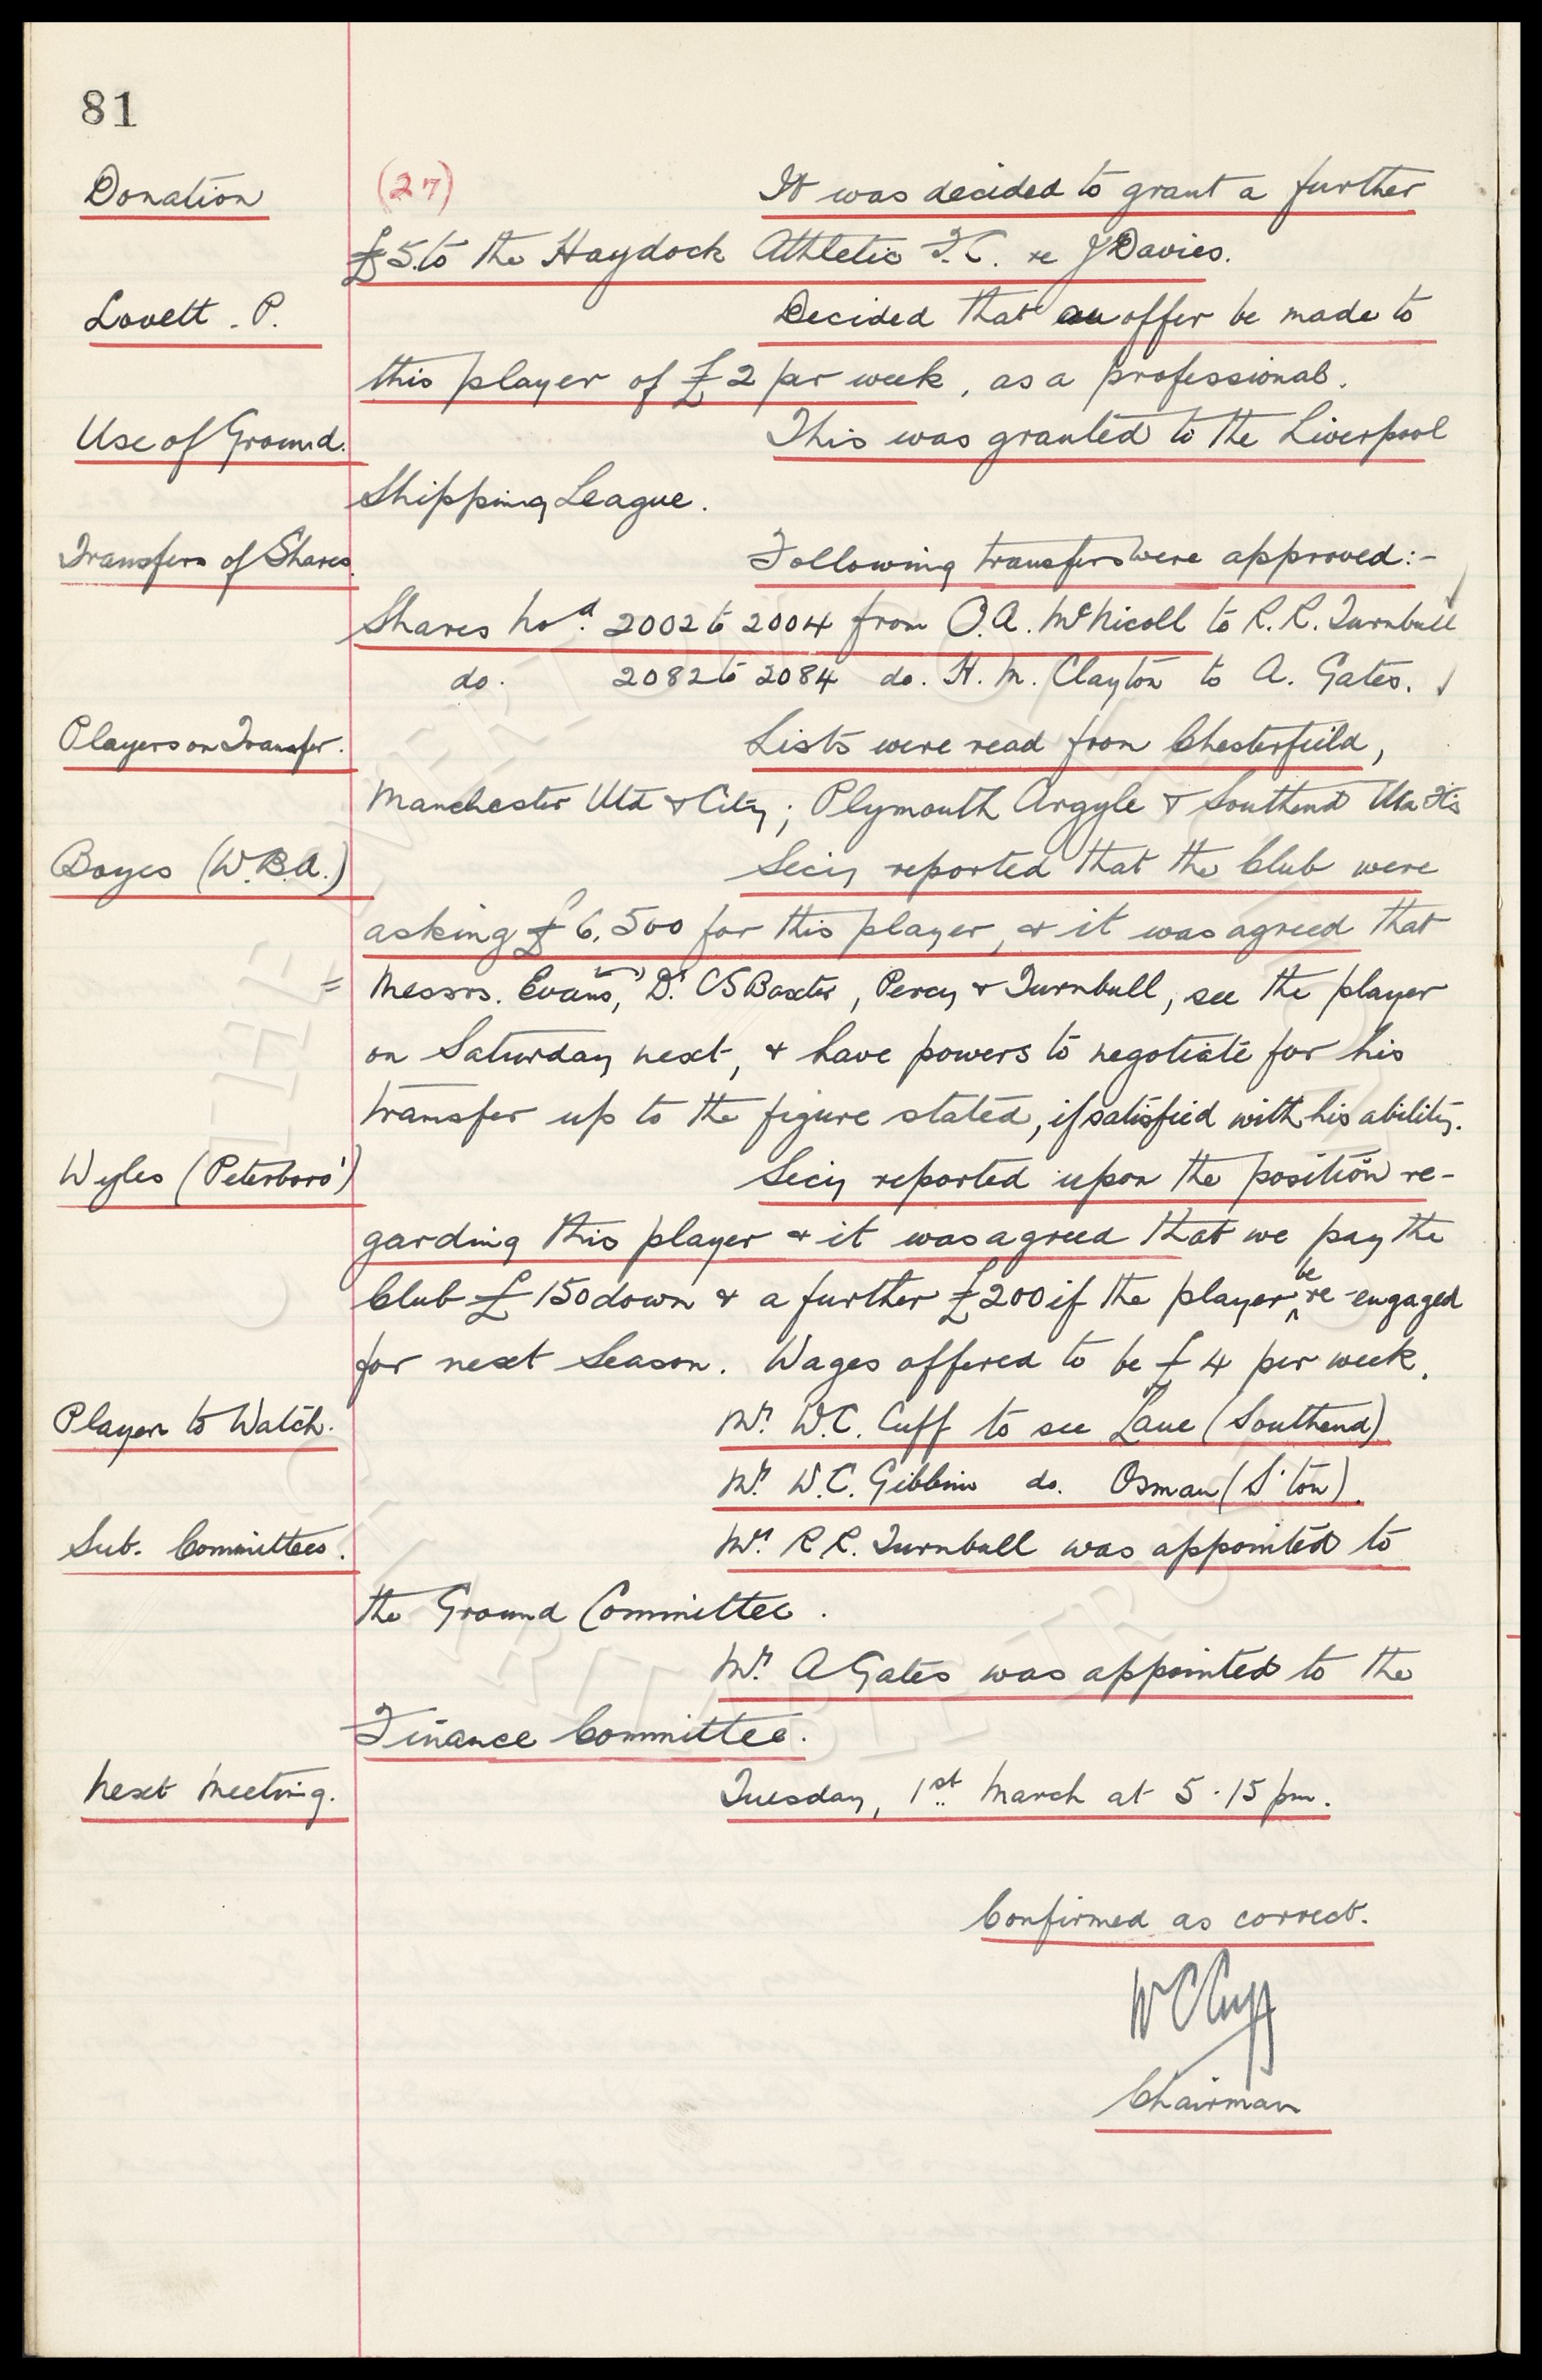 81
Donation (27) It was decided to grant a further
£5 to the Haydock Athletic F.C. re J Davies.
Lovett. P. Decided that an offer be made to
this player of £2 per week, as a professional.
Use of Ground. This was granted to the Liverpool
Shipping League.
Transfers of Shares. Following transfers were approved:-
Shares Nos. 2002 to 2004 from O.A. McNicoll to R.R. Turnbull
do. 2082 to 2084 do. H.M. Clayton to A. Gates.
Players on Transfer. Lists were read from Chesterfield,
Manchester Utd & City; Plymouth Argyle & Southend Utd
Boyes (W.B.A.) Secy reported that the Club were
asking £6,500 for this player, & it was agreed that
= Messrs. Evans, Dr. CS Baxter, Percy & Turnbull, see the player
on Saturday next, & have powers to negotiate for his
transfer up to the figure stated, if satisfied with his ability.
Wyles (Peterboro') Secy reported upon the position re-
garding this player & it was agreed that we pay the
Club £150 down & a further £200 if the player be re-engaged
for next Season. Wages offered to be £4 per week.
Player to Watch. Mr. W.C. Cuff to see Lane (Southend)
Mr. W.C. Gibbins do. Osman (S'ton).
Sub. Committees. Mr. R R. Turnbull was appointed to
the Ground Committee.
Mr. A Gates was appointed to the
Finance Committee.
Next Meeting. Tuesday, 1st March at 5.15 pm.
Confirmed as correct.
W C Cuff
Chairman